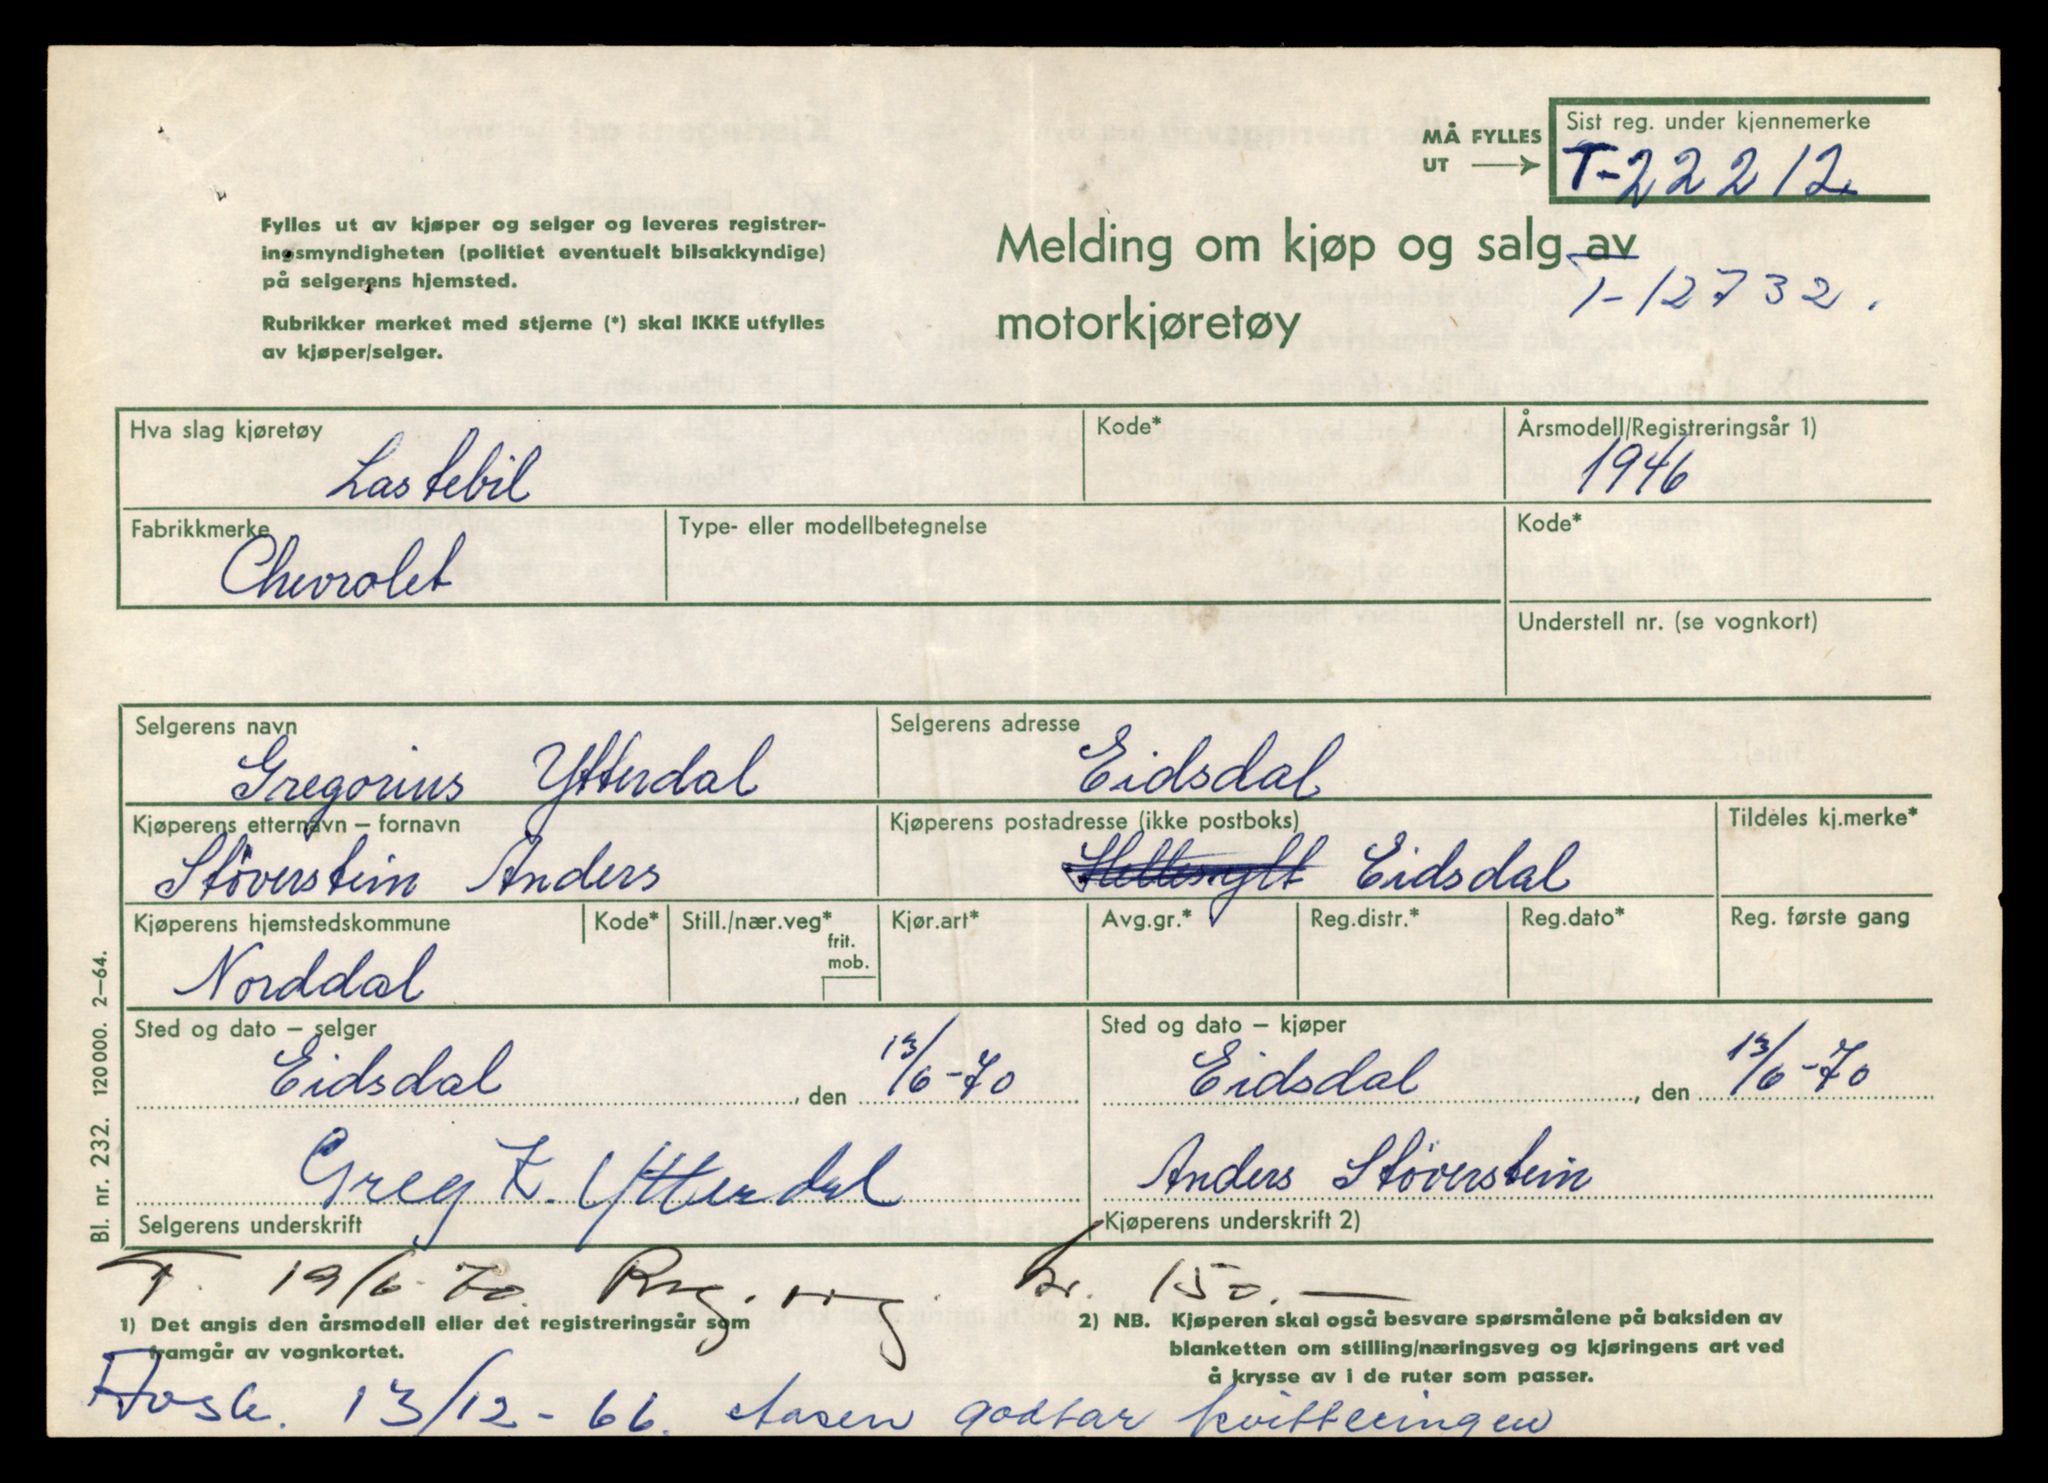 MÅ FYLLES
UT
Sist reg. under kjennemerke
T-22212
Fylles ut av kjøper og selger og leveres registrer-
ingsmyndigheten (politiet eventuelt bilsakkyndige)
på selgerens hjemsted.
Rubrikker merket med stjerne (*) skal IKKE utfylles
av kjøper/selger.
Melding om kjøp og salg av
motorkjøretøy
T-12732.
Hva slag kjøretøy
Lastebil
Kode*
Årsmodell/Registreringsår 1)
1946
Fabrikkmerke
Chevrolet
Type- eller modellbetegnelse
Kode*
Understell nr. (se vognkort)
Selgerens navn
Gregorius Ytterdal
Selgerens adresse
Eidsdal
Kjøperens etternavn – fornavn
Støverstein Anders
Kjøperens postadresse (ikke postboks)
Hellesylt Eidsdal
Tildeles kj.merke*
Kjøperens hjemstedskommune
Norddal
Kode*
Still./nær.veg*
frit.
mob.
Kjør.art*
Avg.gr.*
Reg.distr.*
Reg.dato*
Reg. første gang
Sted og dato – selger
Eidsdal, den 13/6-70
Sted og dato – kjøper
Eidsdal, den 13/6-70
Greg K. Ytterdal
Selgerens underskrift
Anders Støverstein
Kjøperens underskrift 2)
Bl. nr. 232. 120 000. 2–64.
T. 19/6-70. Reg. kr. 150.—
1) Det angis den årsmodell eller det registreringsår som
framgår av vognkortet.
2) NB. Kjøperen skal også besvare spørsmålene på baksiden av
blanketten om stilling/næringsveg og kjøringens art ved
å krysse av i de ruter som passer.
13/12-66. Aasen godtar kvitteringen